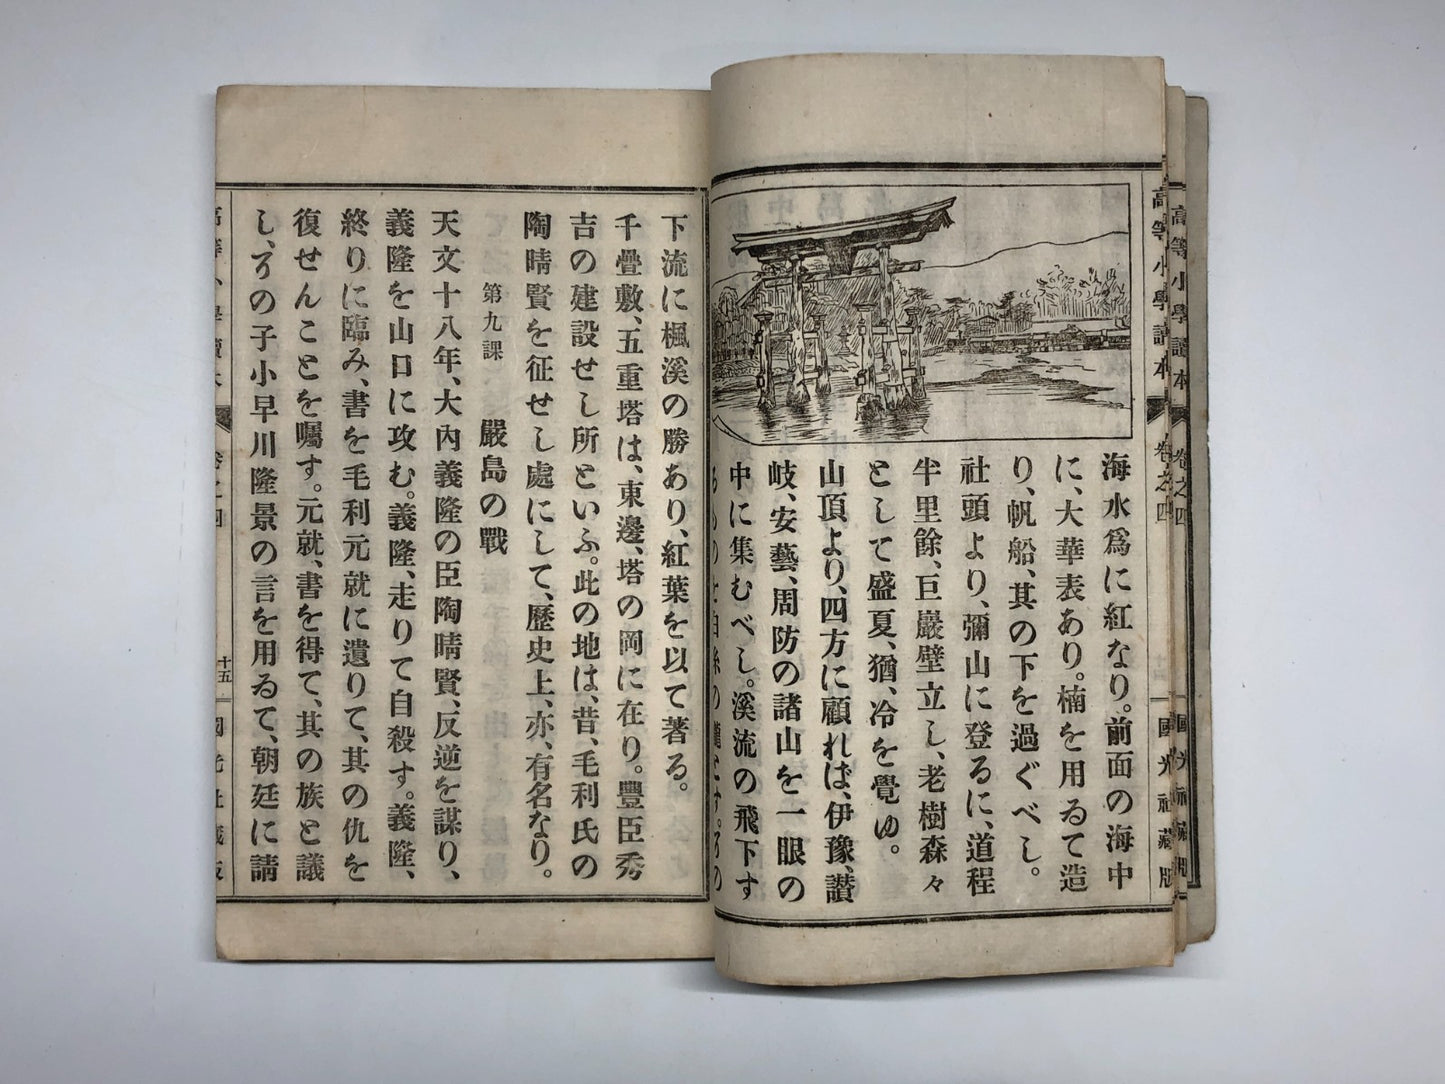 高等小學讀本
卷之四
國光社藏版
高等小學讀本
卷之四
國光社藏版
海水爲に紅なり。前面の海中
に、大華表あり。楠を用ゐて造
り、帆船、其の下を過ぐべし。
社頭より、彌山に登るに、道程
半里餘、巨巖壁立し、老樹森々
として盛夏、猶、冷を覺ゆ。
山頂より、四方に顧れば、伊豫、讃
岐、安藝、周防の諸山を一眼の
中に集むべし。溪流の飛下す
るもの七白糸の瀧とす。その
下流に楓溪の勝あり、紅葉を以て著る。
千疊敷、五重塔は、東邊、塔の岡に在り。豐臣秀
吉の建設せし所といふ。此の地は、昔、毛利氏の
陶晴賢を征せし處にして、歷史上、亦、有名なり。
第九課 嚴島の戰
天文十八年、大內義隆の臣陶晴賢、反逆を謀り、
義隆を山口に攻む。義隆、走りて自殺す。義隆、
終りに臨み、書を毛利元就に遺りて、其の仇を
復せんことを囑す。元就、書を得て、其の族と議
し、その子小早川隆景の言を用ゐて、朝廷に請
高等小學讀本
卷之四
十五
國光社藏版